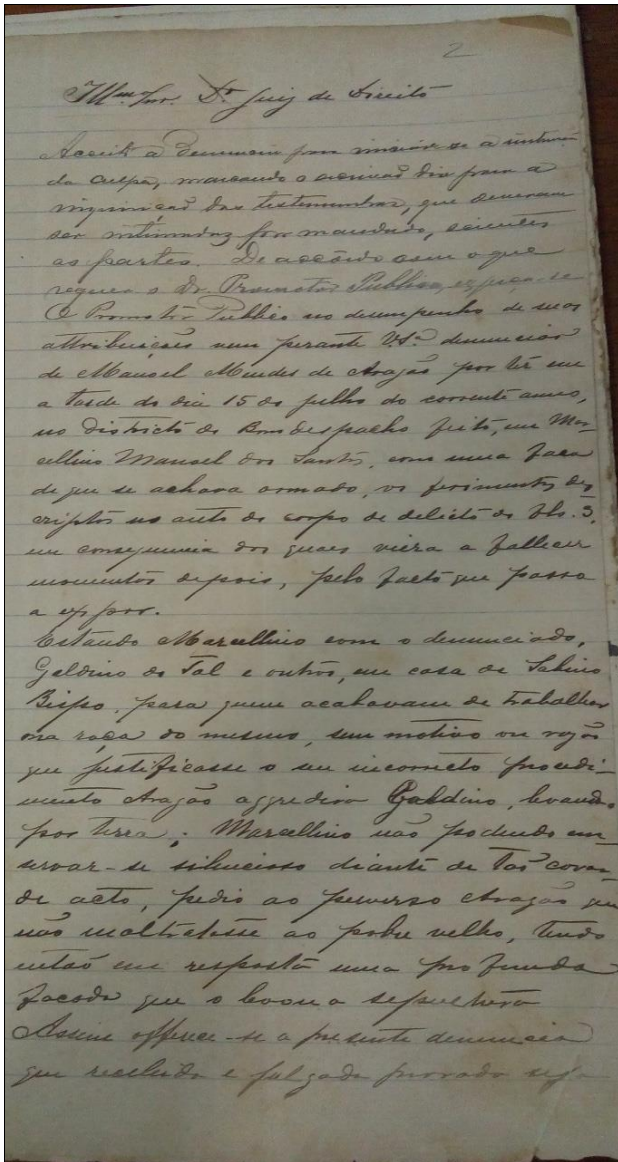 2
Illmo Snr. Dr. Juiz de Direito
Acceito a denuncia para iniciar-se a
da culpa, marcando o escrivão dia para a
inquirição das testemunhas, que deverão
ser intimadas por mandado, scientes
as partes. De accôrdo com o que
requer o Dr. Promotor Publico, expeça-se
O Promotor Publico no desempenho de suas
attribuições vem perante V.Sª. denunciar
de Manoel Mendes de Aragão por ter em
a tarde do dia 15 de julho do corrente anno,
no districto de Bom despacho feito, em Mar-
cellino Manoel dos Santos, com uma faca
de que se achava armado, os ferimentos des
criptos no auto de corpo de delicto de fls. 3,
em consequencia dos quaes viera a fallecer
momentos depois, pelo facto que passa
a expor.
Estando Marcellino com o denunciado,
Galdino de Tal e outros, em casa de Sabino
Bispo, para quem acabavam de trabalhar
na roça do mesmo, sem motivo ou razão
que justificasse o seu incorrecto procedi-
mento Aragão aggredira Galdino, levando
por terra; Marcellino não podendo con-
servar-se silencioso diante de tão covar-
de acto, pedio ao perverso Aragão que
não maltratasse ao pobre velho, tendo
então em resposta uma profunda
facada que o levou a sepultura
Assim offerece-se a presente denuncia
que recebida e julgada provada seja